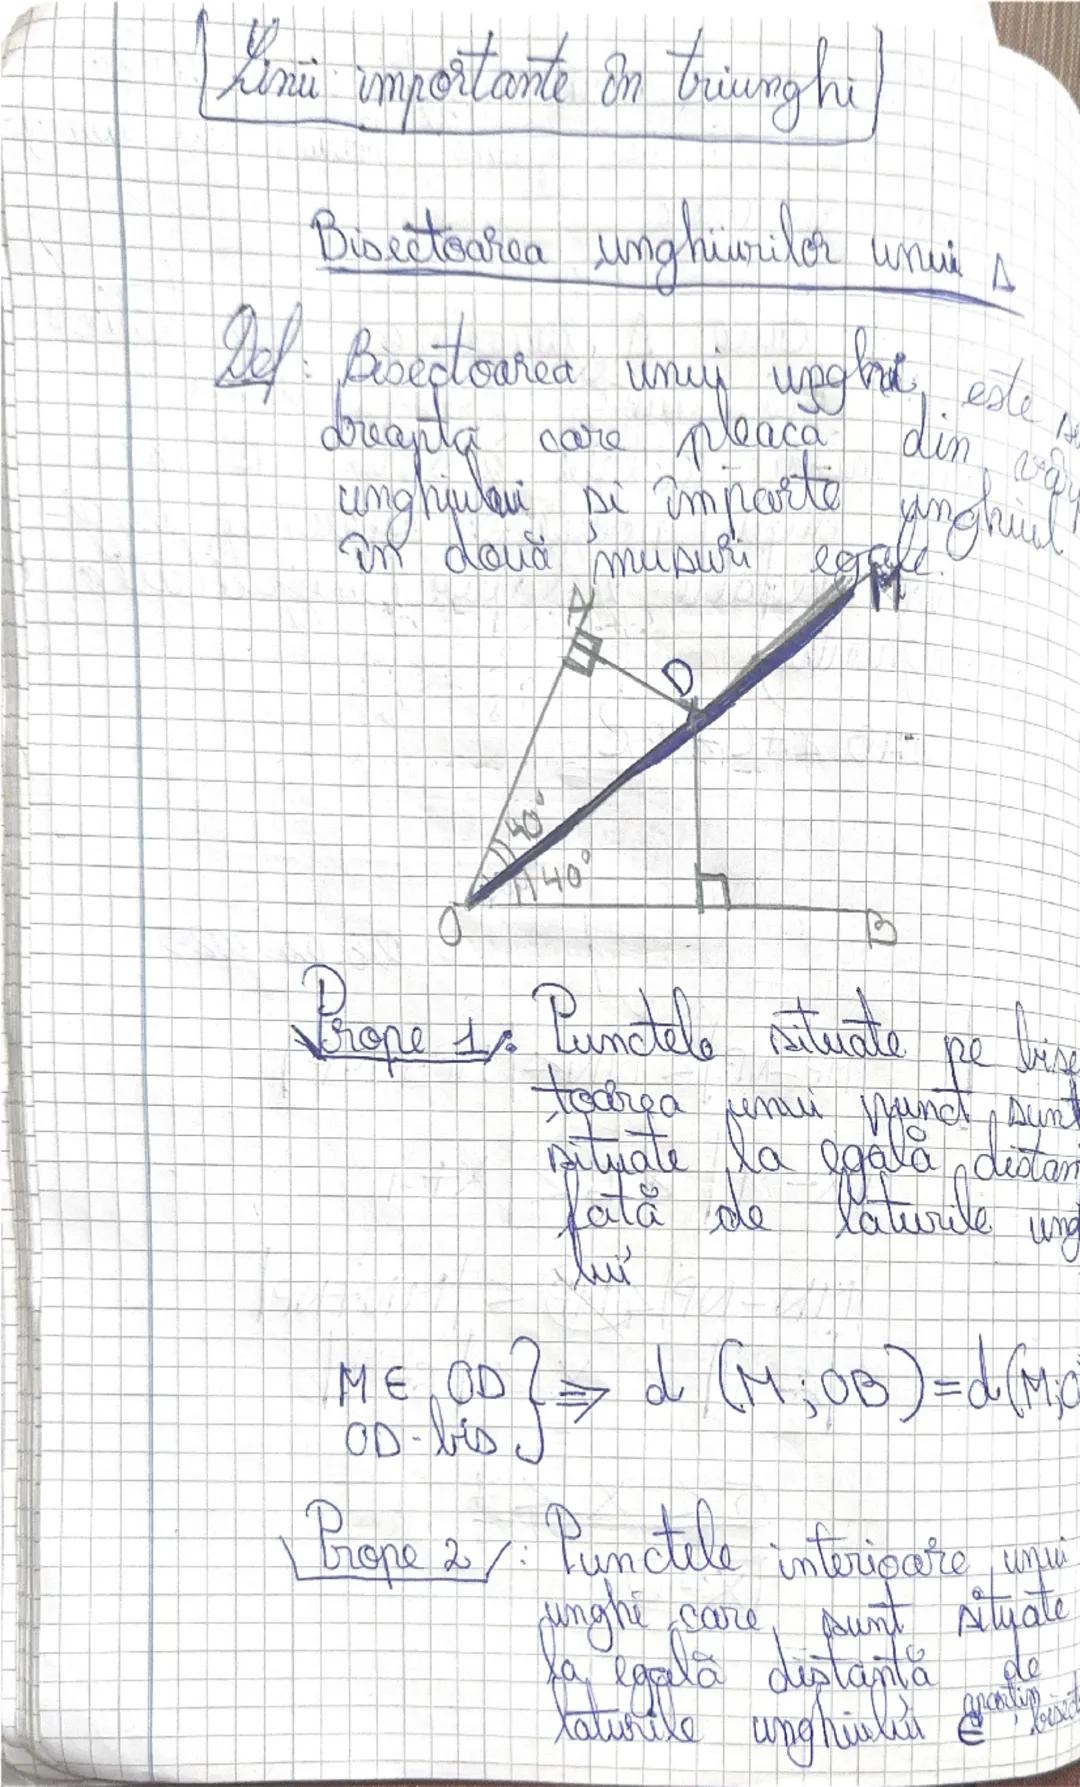 Linii importante în triunghi
Bisectoarea unghiurilor unui Δ
Def: Bisectoarea unui unghi este
dreapta care pleacă din
unghiului și împarte unghiul
în două măsuri egale.
M
D
40°
40°
O
B
Prope 1: Punctele situate pe bise
toarea unui punct sunt
situate la egală distan
fată de laturile ung
lui
M ∈ OD } ⇒ d (M; OB) = d(M; O
OD - bis
Prope 2: Punctele interioare unui
unghi care sunt situate
la egală distanță de
laturile unghiului ∈ aparțin bisect